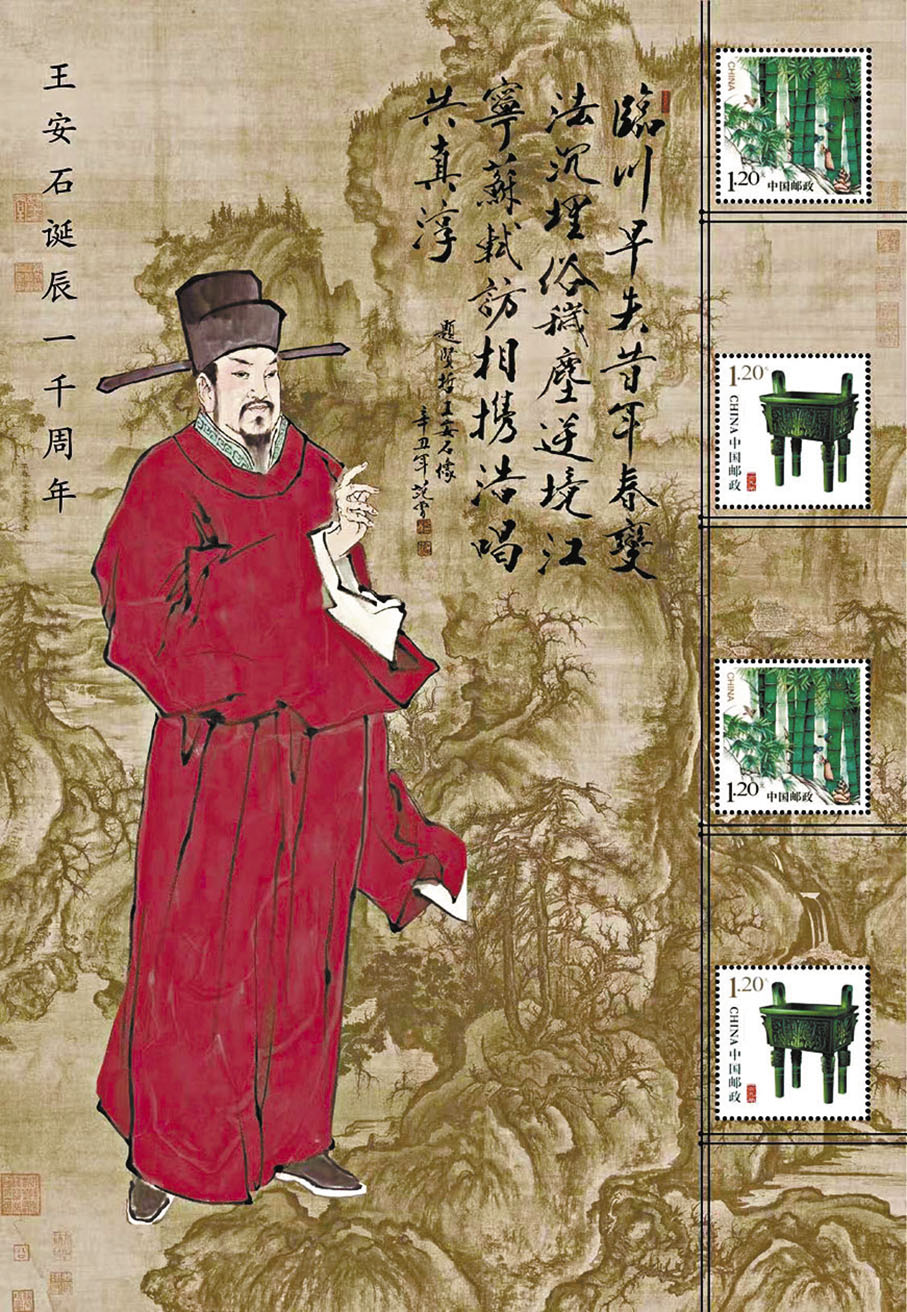 王安石诞辰一千周年
臨川早失昔年春變
法沉埋俗穢塵逆境江
寧蘇軾訪相携浩唱
共真淳
題賢哲王安石像
辛丑年范曾
CHINA
1.20
中国邮政
1.20
CHINA中国邮政
CHINA
1.20
中国邮政
1.20
CHINA中国邮政